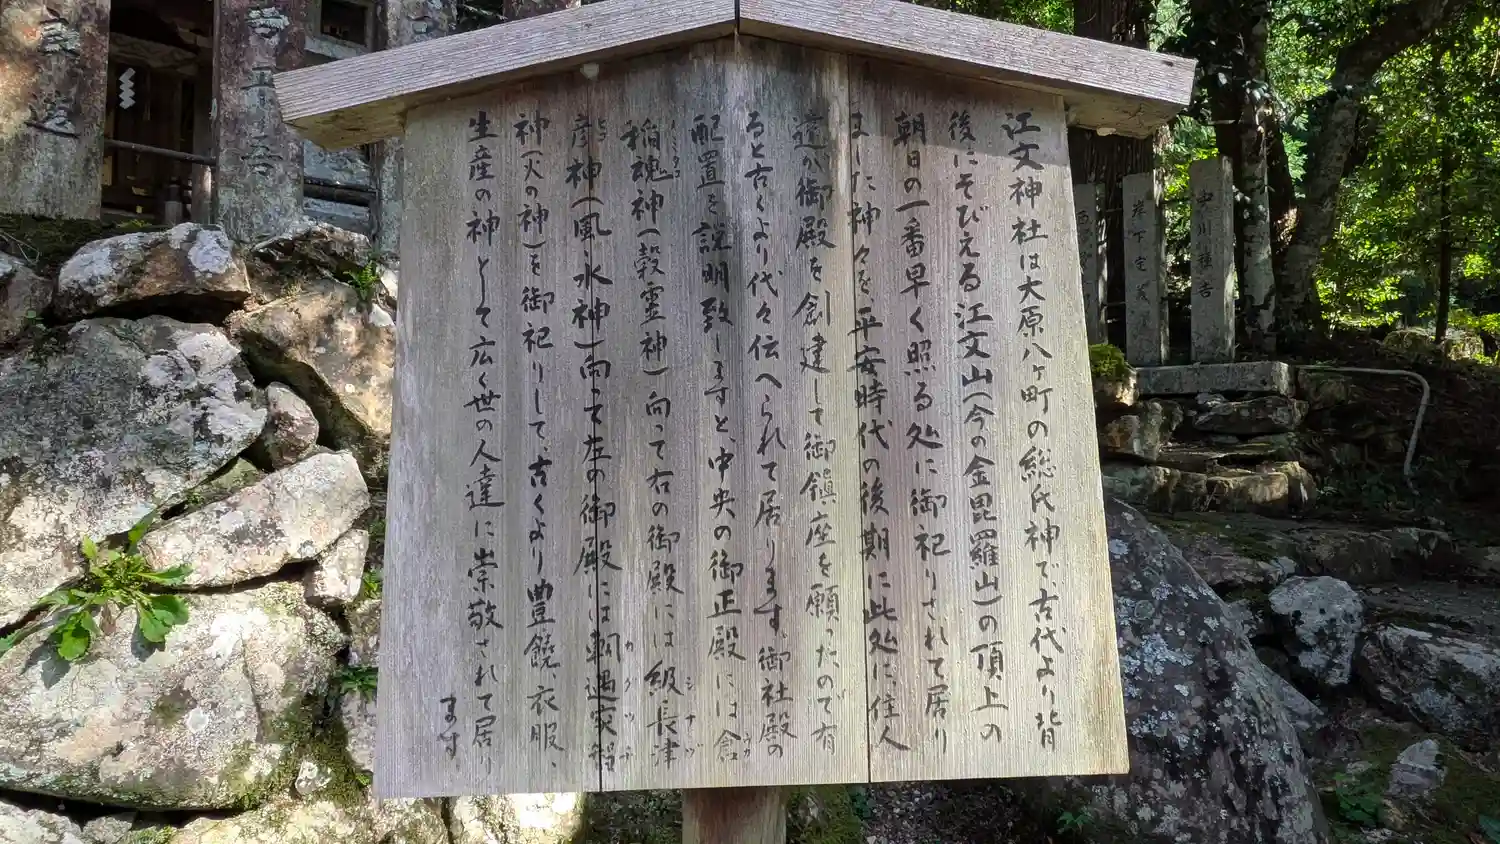 江文神社は大原八ヶ町の総氏神で、古代より背
後にそびえる江文山(今の金毘羅山)の頂上の
朝日の一番早く照る処に御祀りされて居り
ました神々を、平安時代の後期に此処に住人
達が御殿を創建して御鎮座を願ったので有
ると古くより代々伝へられて居ります。御社殿の
配置を説明致しますと、中央の御正殿には倉
稲魂神(穀霊神)向って右の御殿には級長津
彦神(風、水神)向って左の御殿には軻遇突智
神(火の神)を御祀りして、古くより豊饒、衣服、
生産の神として広く世の人達に崇敬されて居り
ます。
ウカ
ノミタマ
シナツ
ヒコ
カグツチ
中川種吉
岸下定